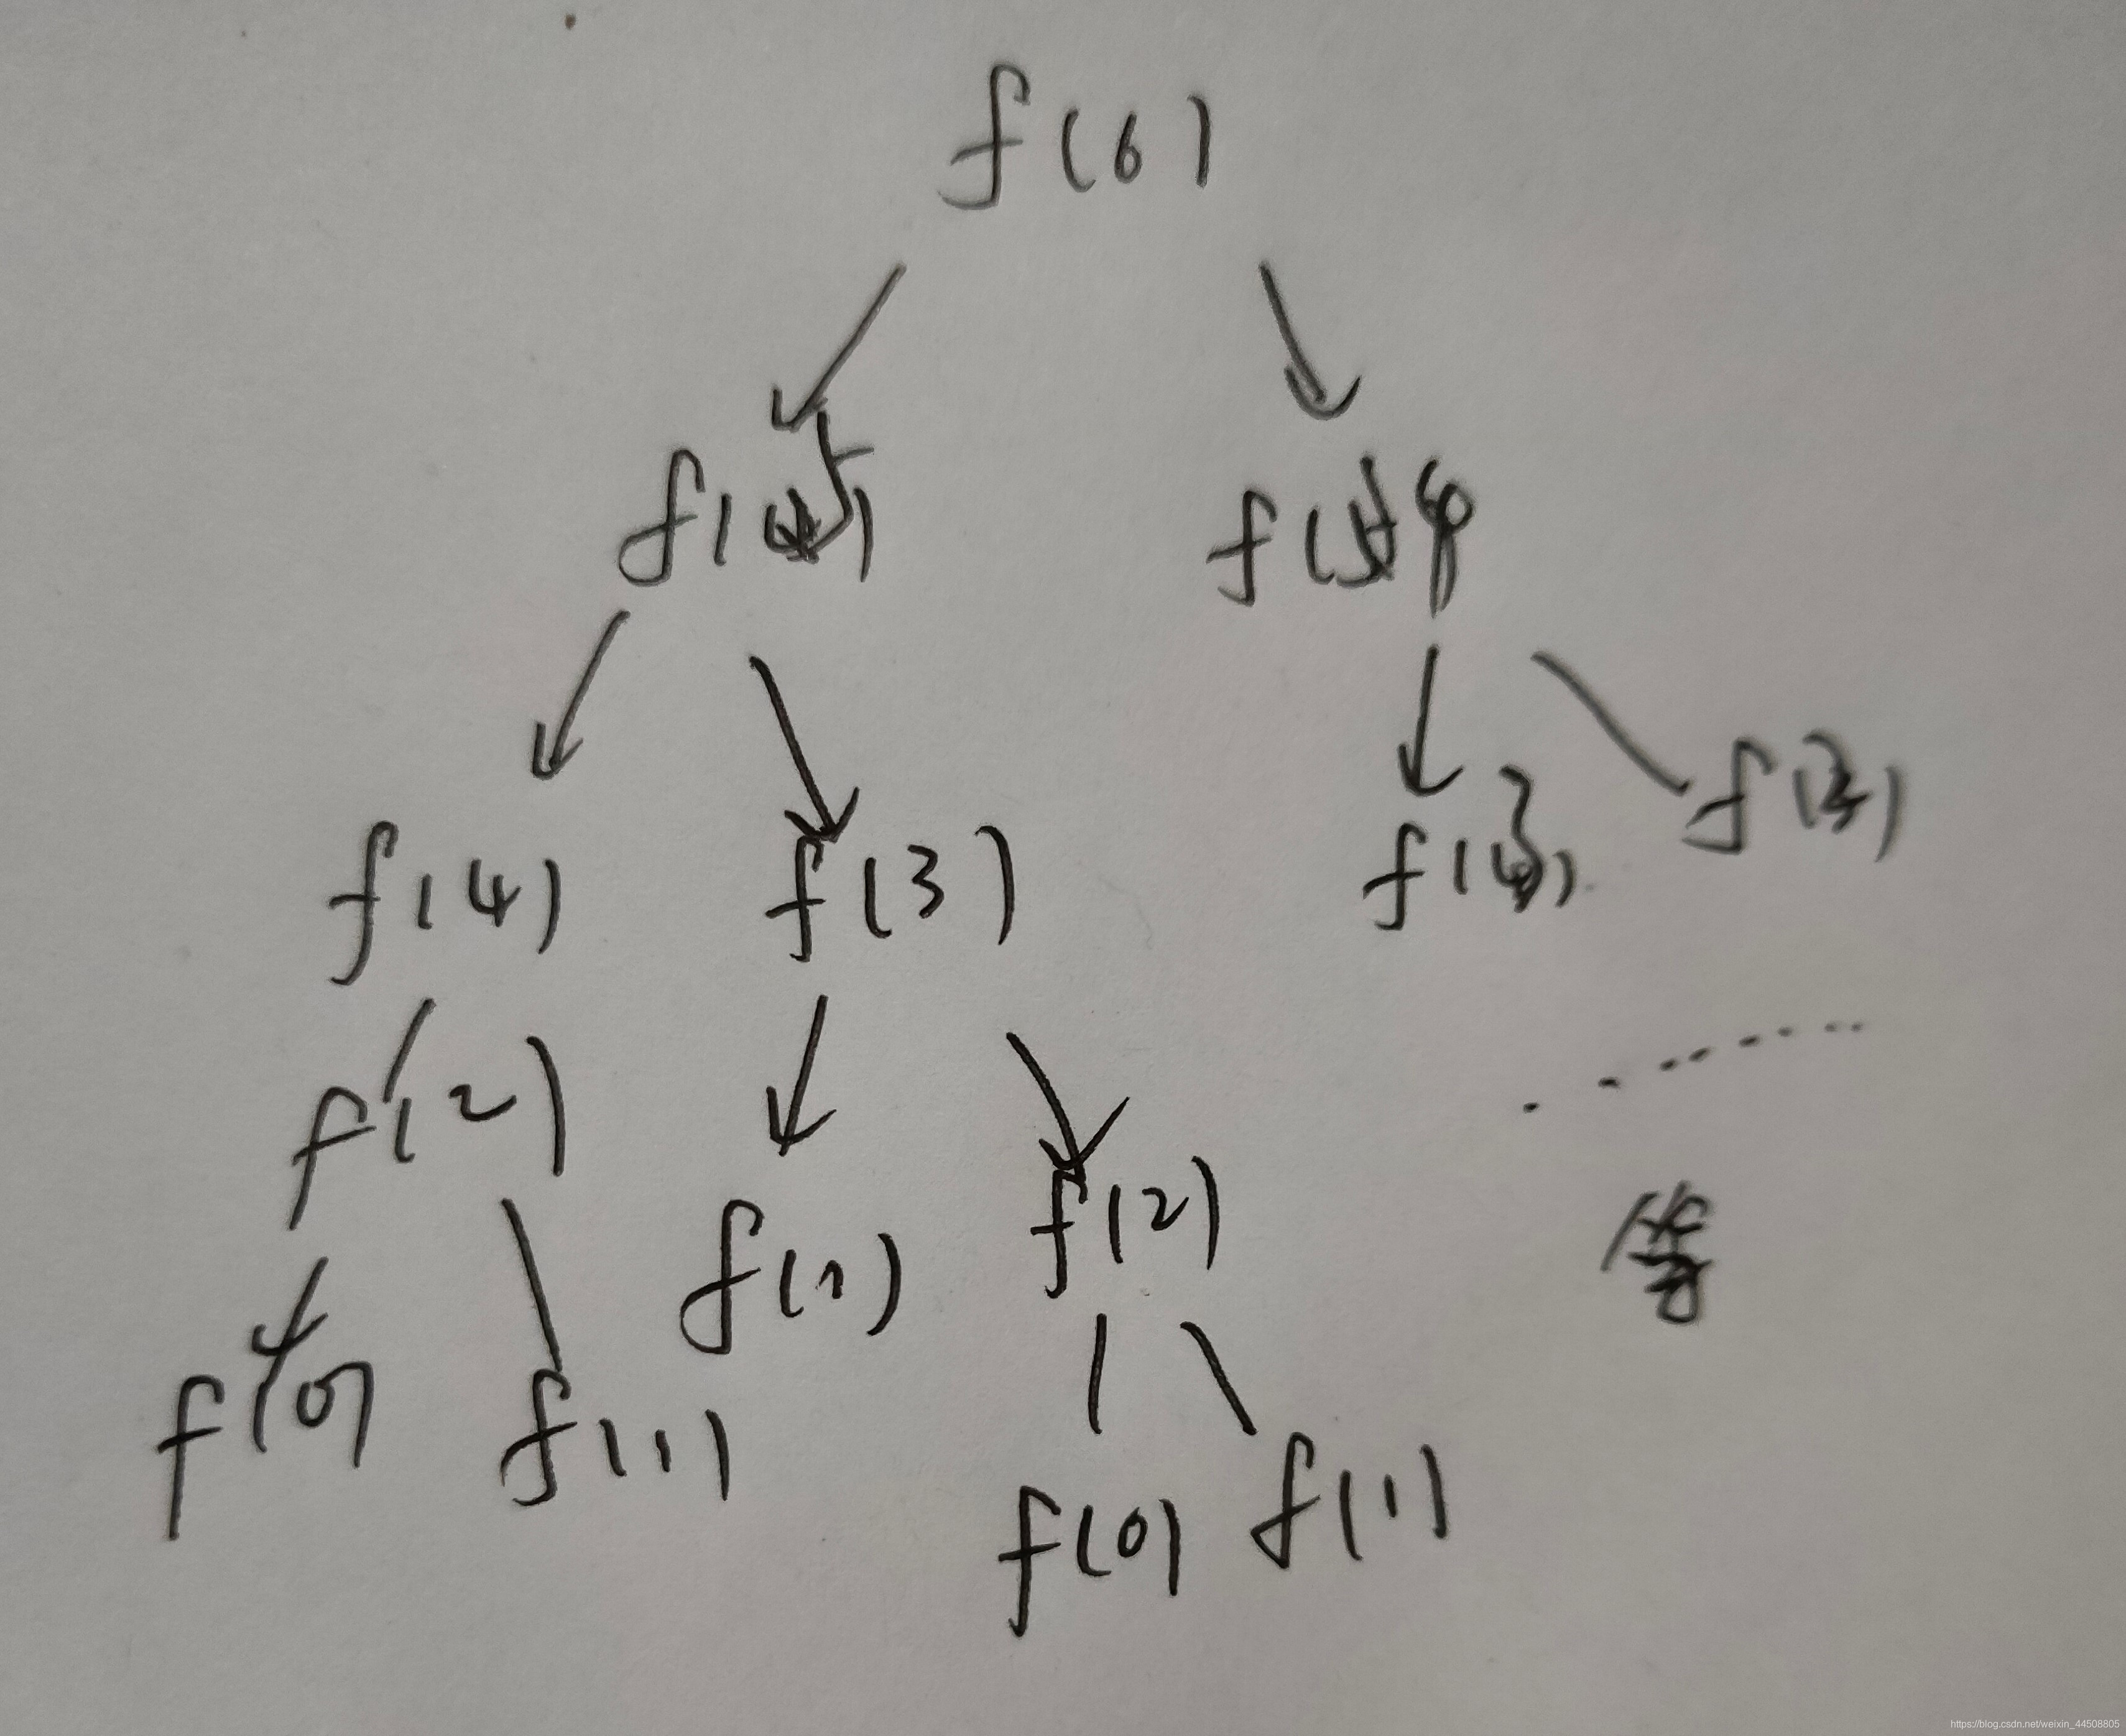 f(6)
f(5) f(4
f(4) f(3) f(3) f(2)
f(2) f(1) f(2) 等
f(0) f(1) f(0) f(1)
https://blog.csdn.net/weixin_44508805